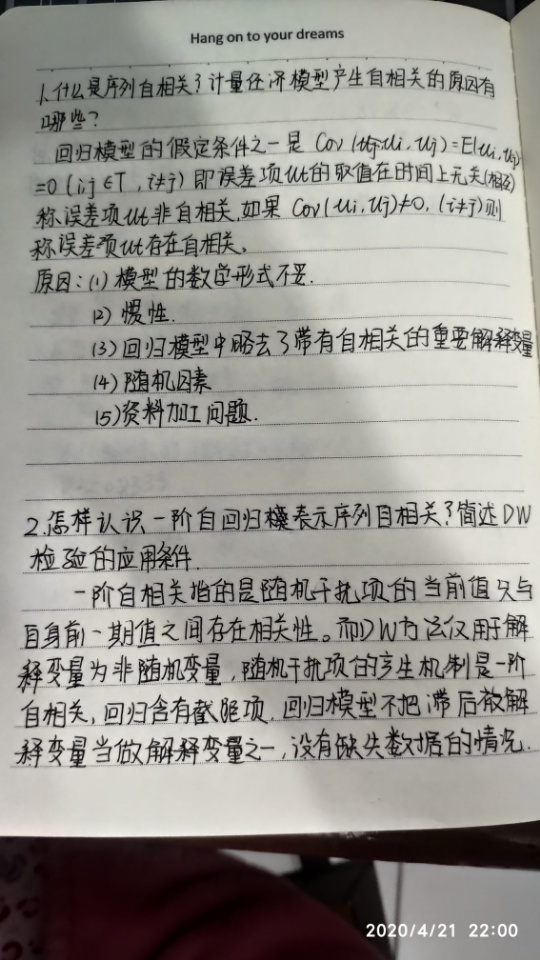 Hang on to your dreams
1.什么是序列自相关?计量经济模型产生自相关的原因有
哪些?
回归模型的假定条件之一是 Cov(ui,uj)=E(ui,uj)
=0(i,j∈T,i≠j)即误差项ut的取值在时间上无关(相互)
称误差项ut非自相关,如果 Cov(ui,uj)≠0,(i≠j)则
称误差项ut存在自相关。
原因:(1)模型的数学形式不妥.
(2)惯性.
(3)回归模型中略去了带有自相关的重要解释变量
(4)随机因素
(5)资料加工问题.
2.怎样认识一阶自回归模表示序列自相关?简述DW
检验的应用条件.
一阶自相关指的是随机干扰项的当前值只与
自身前一期值之间存在相关性。而DW方法仅用于解
释变量为非随机变量,随机干扰项的产生机制是一阶
自相关,回归含有截距项.回归模型不把滞后被解
释变量当做解释变量之一,没有缺失数据的情况.
2020/4/21 22:00